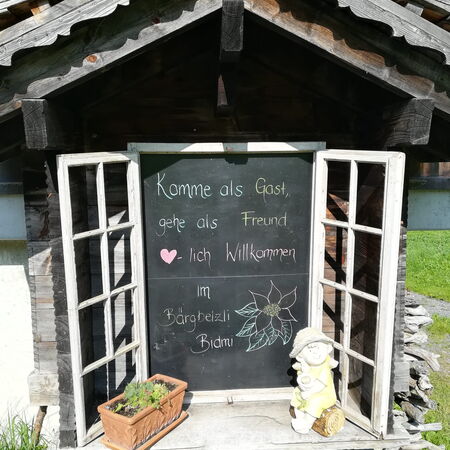 Komme als Gast,
gehe als Freund
♥-lich Willkommen
im
Bärgheizli
Bidmi